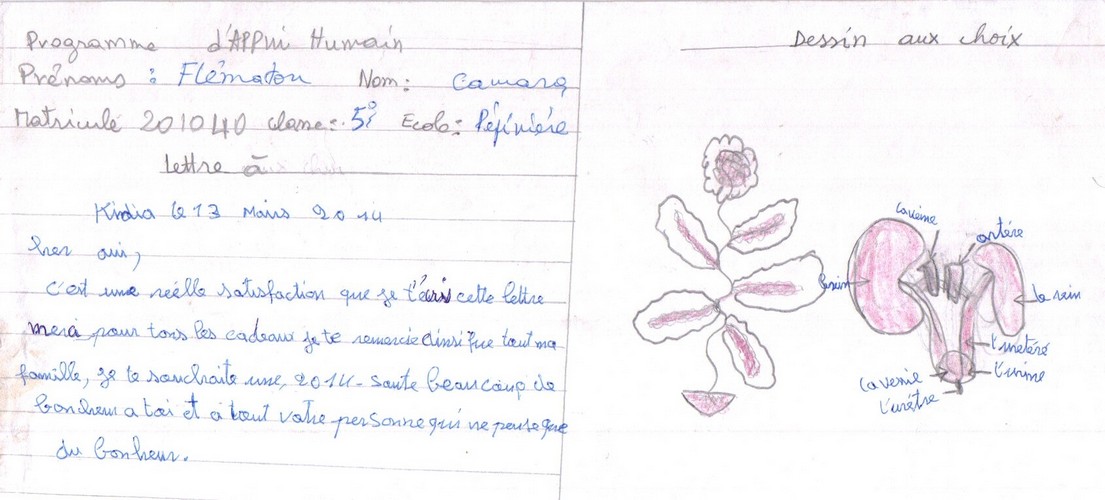 Programme d'APPui Humain
Prénoms : Flématou Nom: Camara
Matricule 201040 classe: 5è Ecole: Pépinière
lettre à
Kindia le 13 Mars 2014
her ami,
c'est une réelle satisfaction que je t'écris cette lettre
merci pour tons les cadeaux je te remercie ainsi que tout ma
famille, je te souhaite une, 2014 - sante beaucoup de
bonheur a toi et à tout votre personne qui ne pense que
du bonheur.
Dessin aux choix
la veine
artére
le rein
le rein
l'uretéré
l'urine
la vessie
l'urétre